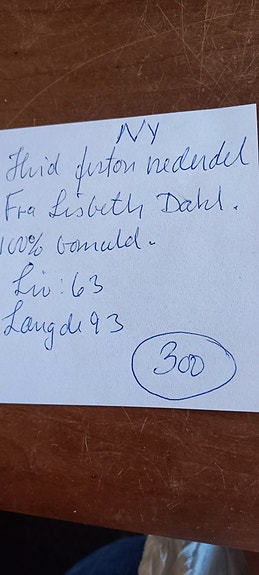 NY
Hvid festton nederdel
Fra Lisbeth Dahl.
100% bomuld.
Liv: 63
Længde 93
300